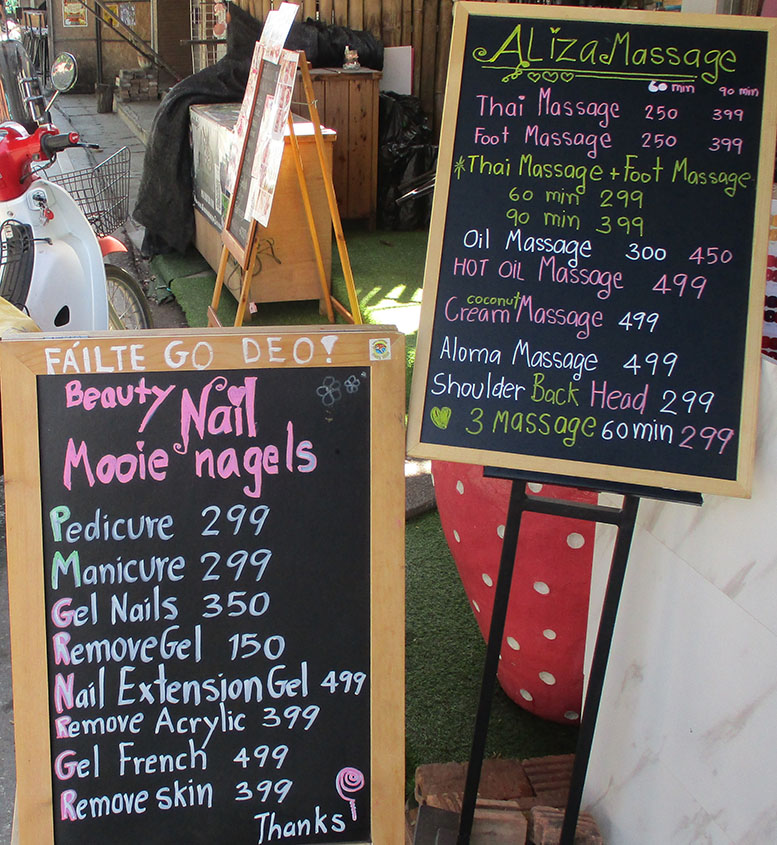 FÁILTE GO DEO!
Beauty Nail
Mooie nagels
Pedicure 299
Manicure 299
Gel Nails 350
Remove Gel 150
Nail Extension Gel 499
Remove Acrylic 399
Gel French 499
Remove skin 399
Thanks
ALiza Massage
60 min 90 min
Thai Massage 250 399
Foot Massage 250 399
*Thai Massage + Foot Massage
60 min 299
90 min 399
Oil Massage 300 450
HOT OiL Massage 499
Cream coconut Massage 499
Aloma Massage 499
Shoulder Back Head 299
3 Massage 60 min 299